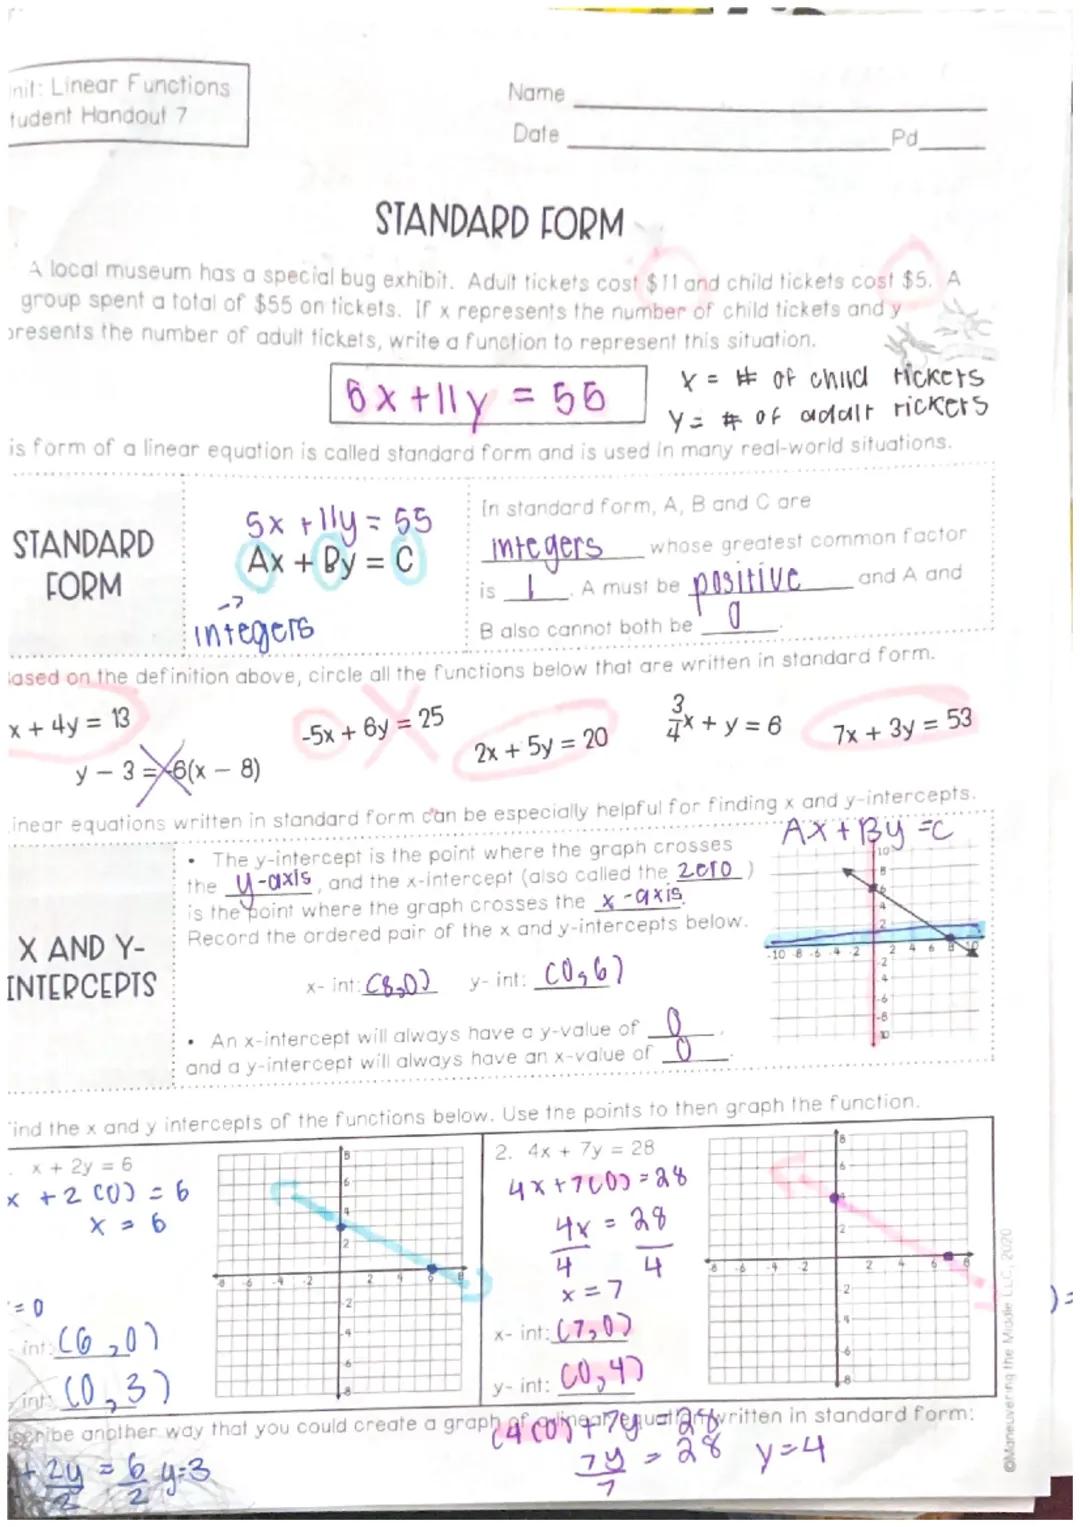 nit: Linear Functions
tudent Handout 7
Name
Date
Pd
STANDARD FORM
A local museum has a special bug exhibit. Adult tickets cost $11 and child tickets cost $5. A
group spent a total of $55 on tickets. If x represents the number of child tickets and y
presents the number of adult tickets, write a function to represent this situation.
5x + 11y = 55
x = # of child tickets
y = # of adult tickets
is form of a linear equation is called standard form and is used in many real-world situations.
STANDARD
FORM
5x + 11y = 55
Ax + By = C
->
integers
In standard form, A, B and C are
integers whose greatest common factor
is 1. A must be positive and A and
B also cannot both be 0.
ased on the definition above, circle all the functions below that are written in standard form.
x + 4y = 13
y – 3 = -6(x – 8)
-5x + 6y = 25
2x + 5y = 20
3/4x + y = 6
7x + 3y = 53
inear equations written in standard form can be especially helpful for finding x and y-intercepts.
X AND Y-
INTERCEPTS
• The y-intercept is the point where the graph crosses
the y-axis, and the x-intercept (also called the zero)
is the point where the graph crosses the x-axis.
Record the ordered pair of the x and y-intercepts below.
x- int: (8,0) y- int: (0,6)
• An x-intercept will always have a y-value of 0.
and a y-intercept will always have an x-value of 0.
Ax + By = C
10
8
6
4
2
-10 -8 -6 -4 -2 2 4 6 8 10
-2
-4
-6
-8
10
ind the x and y intercepts of the functions below. Use the points to then graph the function.
. x + 2y = 6
x + 2(0) = 6
x = 6
= 0
int: (6,0)
int: (0,3)
8
6
4
2
-8 -6 -4 -2 2 4 6 8
-2
-4
-6
-8
2. 4x + 7y = 28
4x + 7(0) = 28
4x = 28
4 4
x = 7
x- int: (7,0)
y- int: (0,4)
8
6
4
2
-8 -6 -4 -2 2 4 6 8
-2
-4
-6
-8
scribe another way that you could create a graph of a linear equation written in standard form:
4(0) + 7y = 28
7y = 28 y=4
7
+ 2y = 6 y=3
2 2
©Maneuvering the Middle LLC, 2020
)=